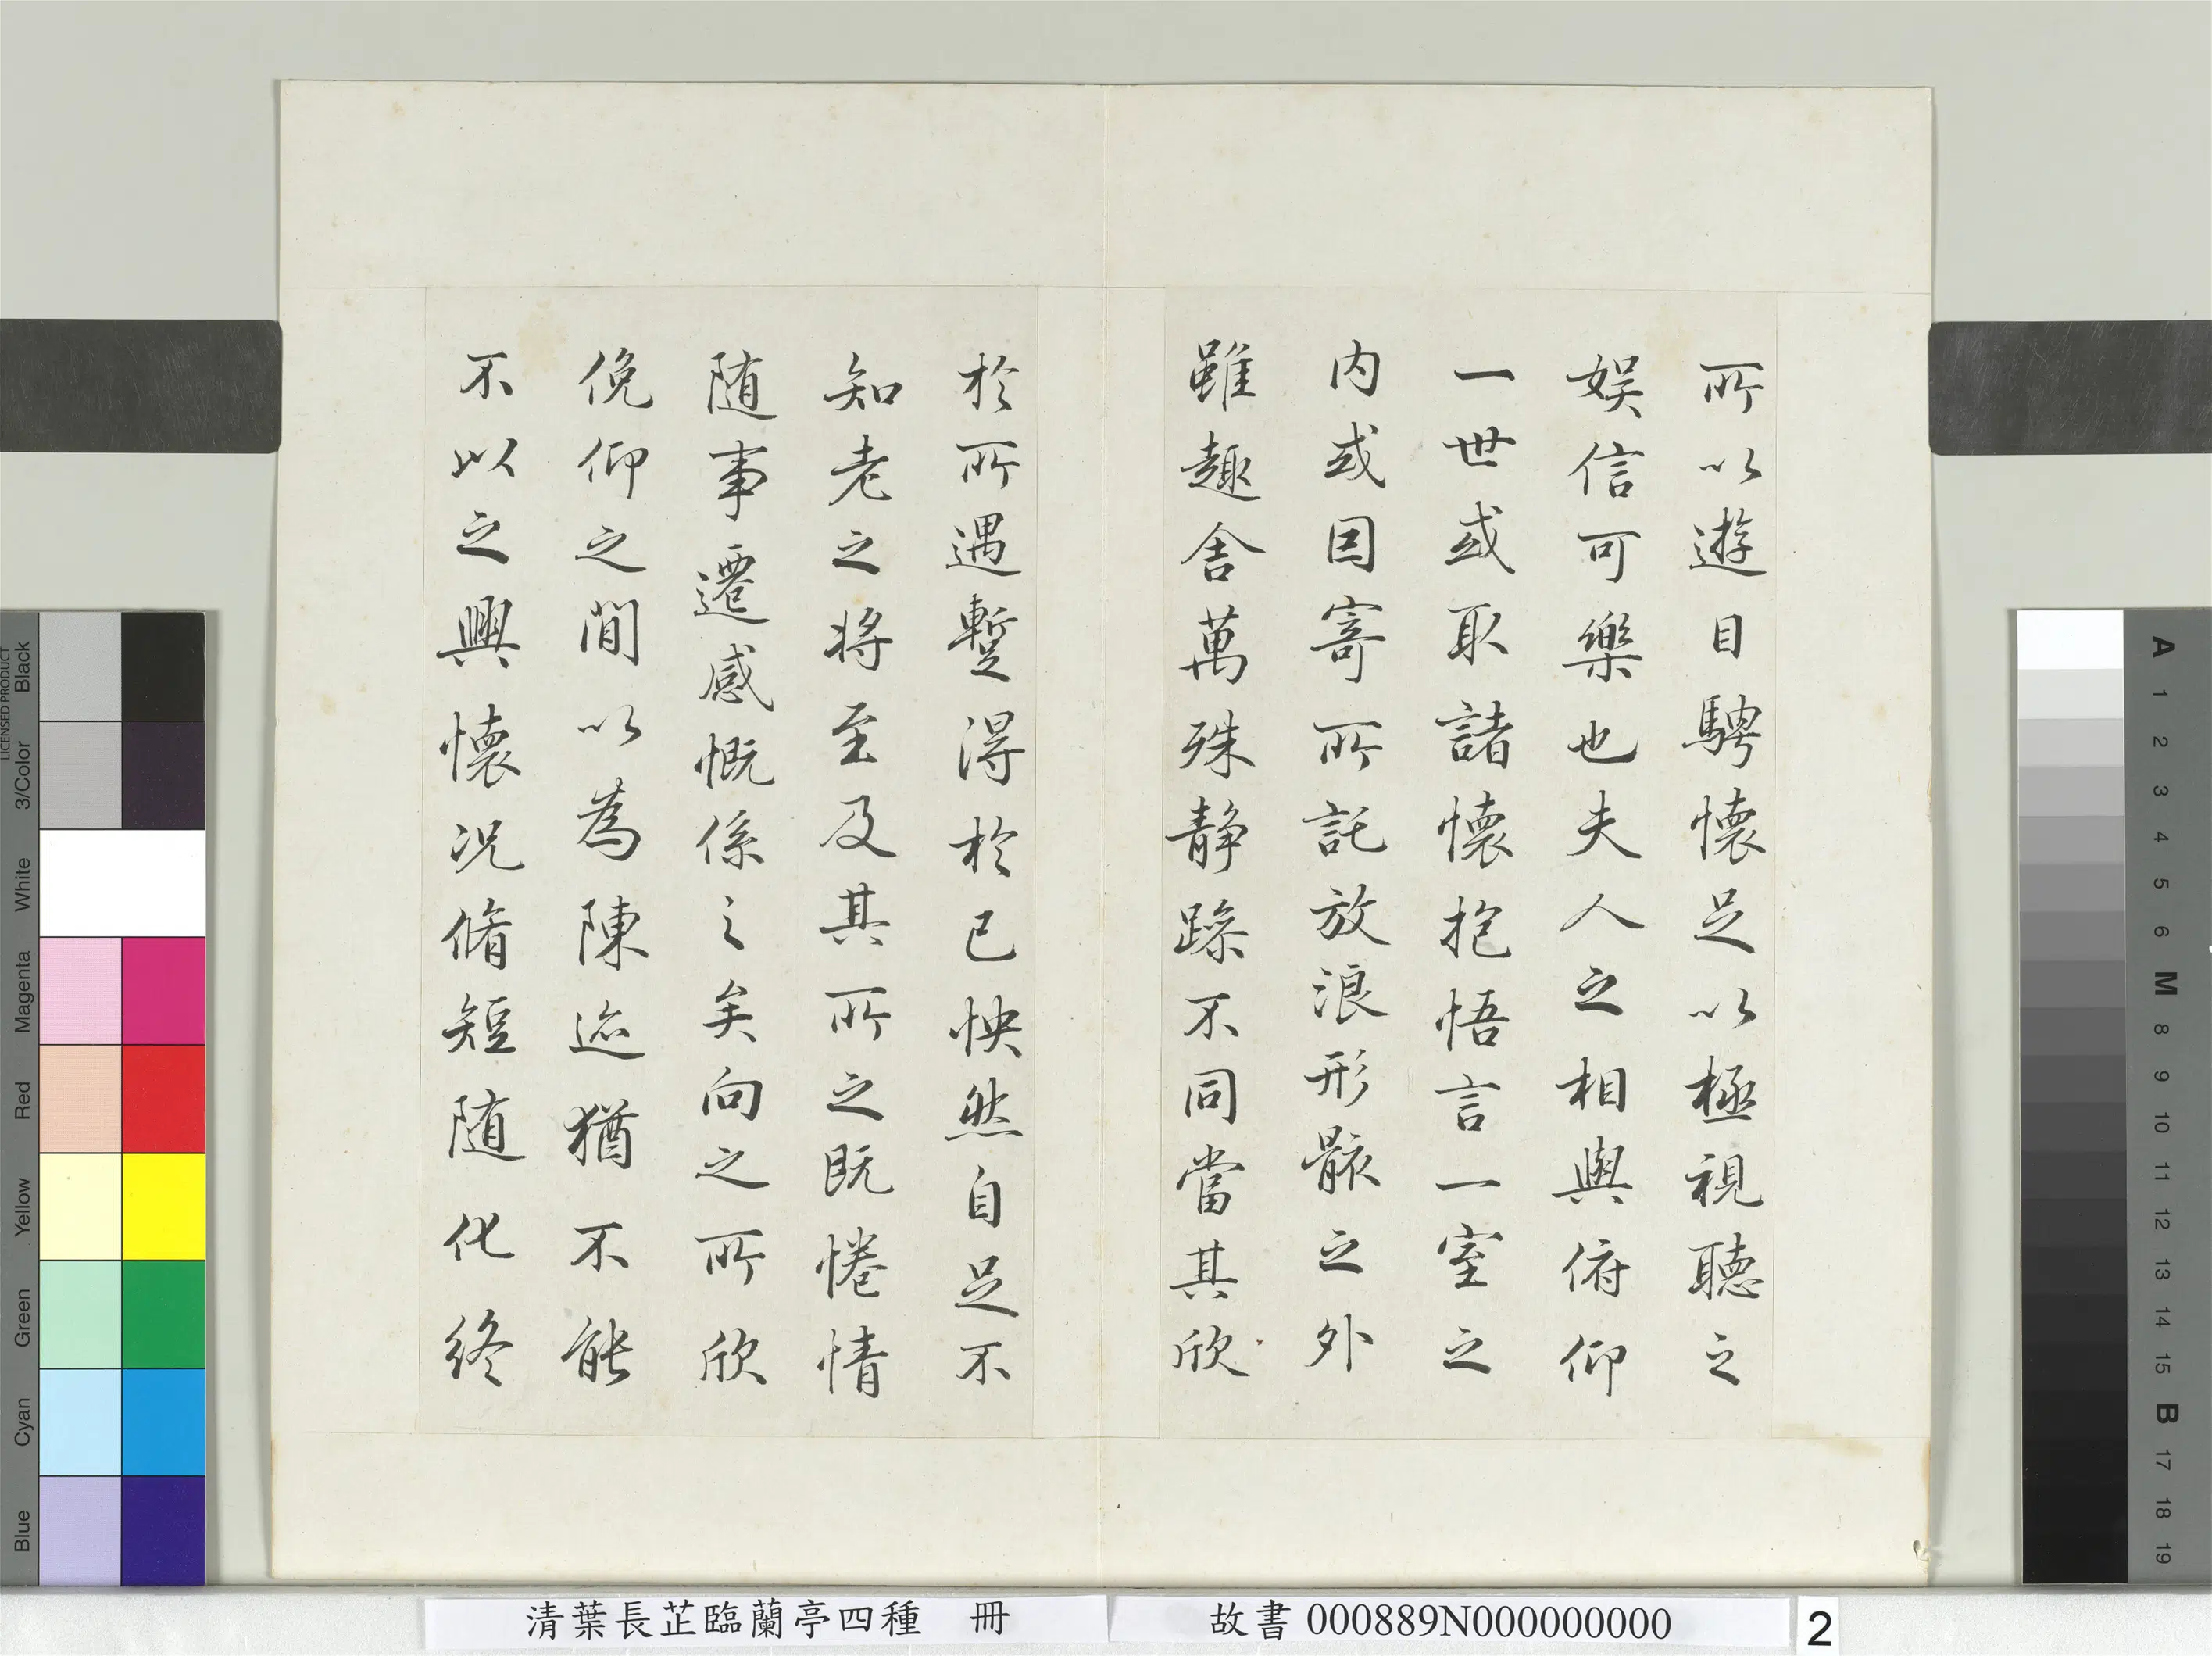 所以遊目騁懷足以極視聽之
娛信可樂也夫人之相與俯仰
一世或取諸懷抱悟言一室之
內或因寄所託放浪形骸之外
雖趣舍萬殊靜躁不同當其欣
於所遇蹔得於己怏然自足不
知老之將至及其所之既惓情
隨事遷感慨係之矣向之所欣
俛仰之間以為陳迹猶不能
不以之興懷況脩短隨化終
清葉長芷臨蘭亭四種 冊
故書 000889N000000000
2
LICENSED PRODUCT
Black
3/Color
White
Magenta
Red
Yellow
Green
Cyan
Blue
A
1
2
3
4
5
6
M
8
9
10
11
12
13
14
15
B
17
18
19